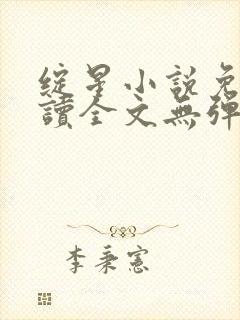 綻星小說免
讀全文無彈
李秉憲